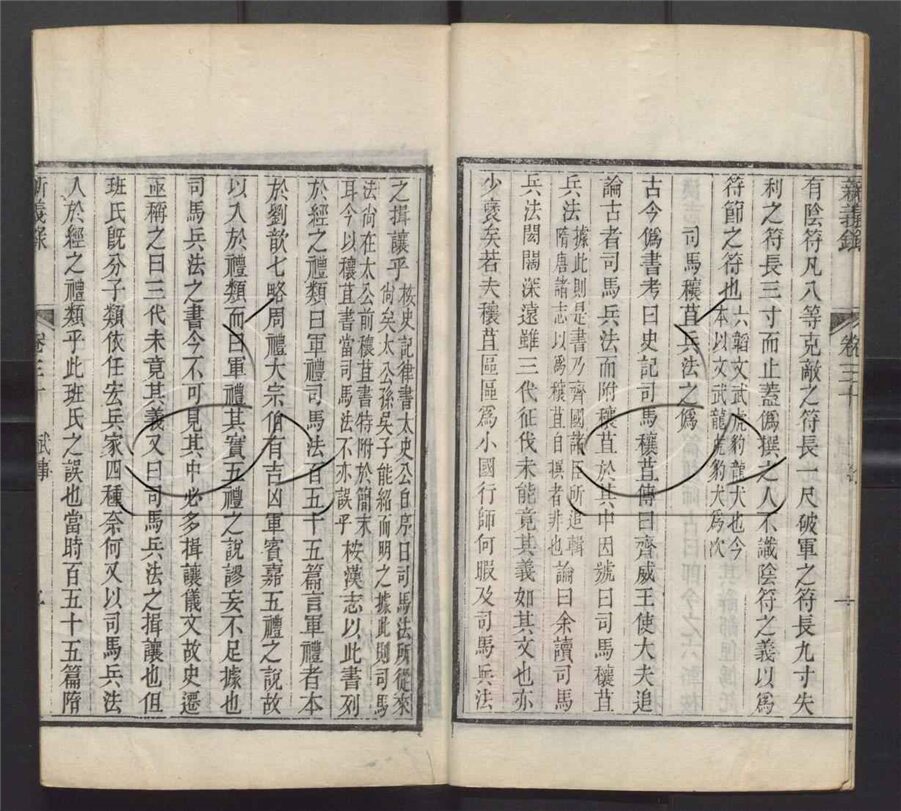 新義錄
卷三十
有陰符凡八等克敵之符長一尺破軍之符長九寸失
利之符長三寸而止蓋僞撰之人不識陰符之義以爲
符節之符也六韜文武虎豹龍犬也今
本以文武龍虎豹犬爲次
司馬穰苴兵法之僞
古今僞書考曰史記司馬穰苴傳曰齊威王使大夫追
論古者司馬兵法而附穰苴於其中因號曰司馬穰苴
兵法據此則是書乃齊國諸臣所追輯
隋唐諸志以爲穰苴自撰者非也論曰余讀司馬
兵法閎闊深遠雖三代征伐未能竟其義如其文也亦
少褒矣若夫穰苴區區爲小國行師何暇及司馬兵法
之揖讓乎桉史記律書太史公自序曰司馬法所從來
尚矣太公孫吳王子能紹而明之據此則司馬
法尚在太公前穰苴書特附於簡末
耳今以穰苴書當司馬法不亦誤乎桉漢志以此書列
於經之禮類曰軍禮司馬法百五十五篇言軍禮者本
於劉歆七略周禮大宗伯有吉凶軍賓嘉五禮之說故
以入於禮類而曰軍禮其實五禮之說謬妄不足據也
司馬兵法之書今不可見其中必多揖讓儀文故史遷
亟稱之曰三代未竟其義又曰司馬兵法之揖讓也但
班氏旣分子類依任宏兵家四種奈何又以司馬兵法
入於經之禮類乎此班氏之誤也當時百五十五篇隋
新義錄
卷三十
武事